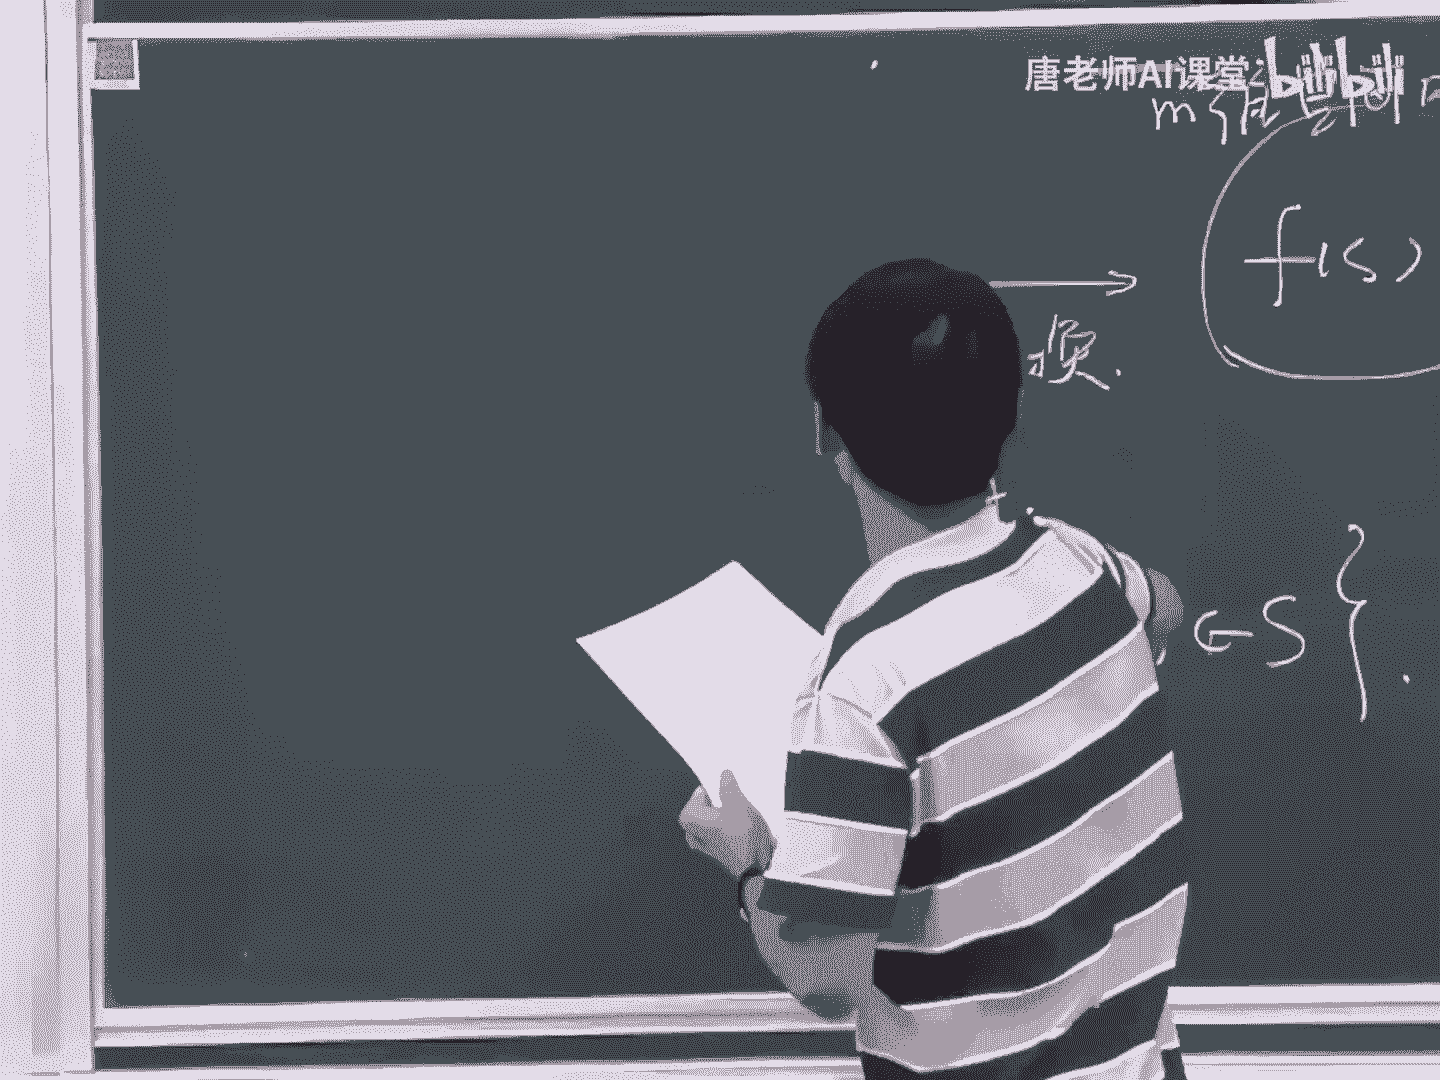 唐老师AI课堂 bilibili
m维空间
f(S)
换.
∈S}.